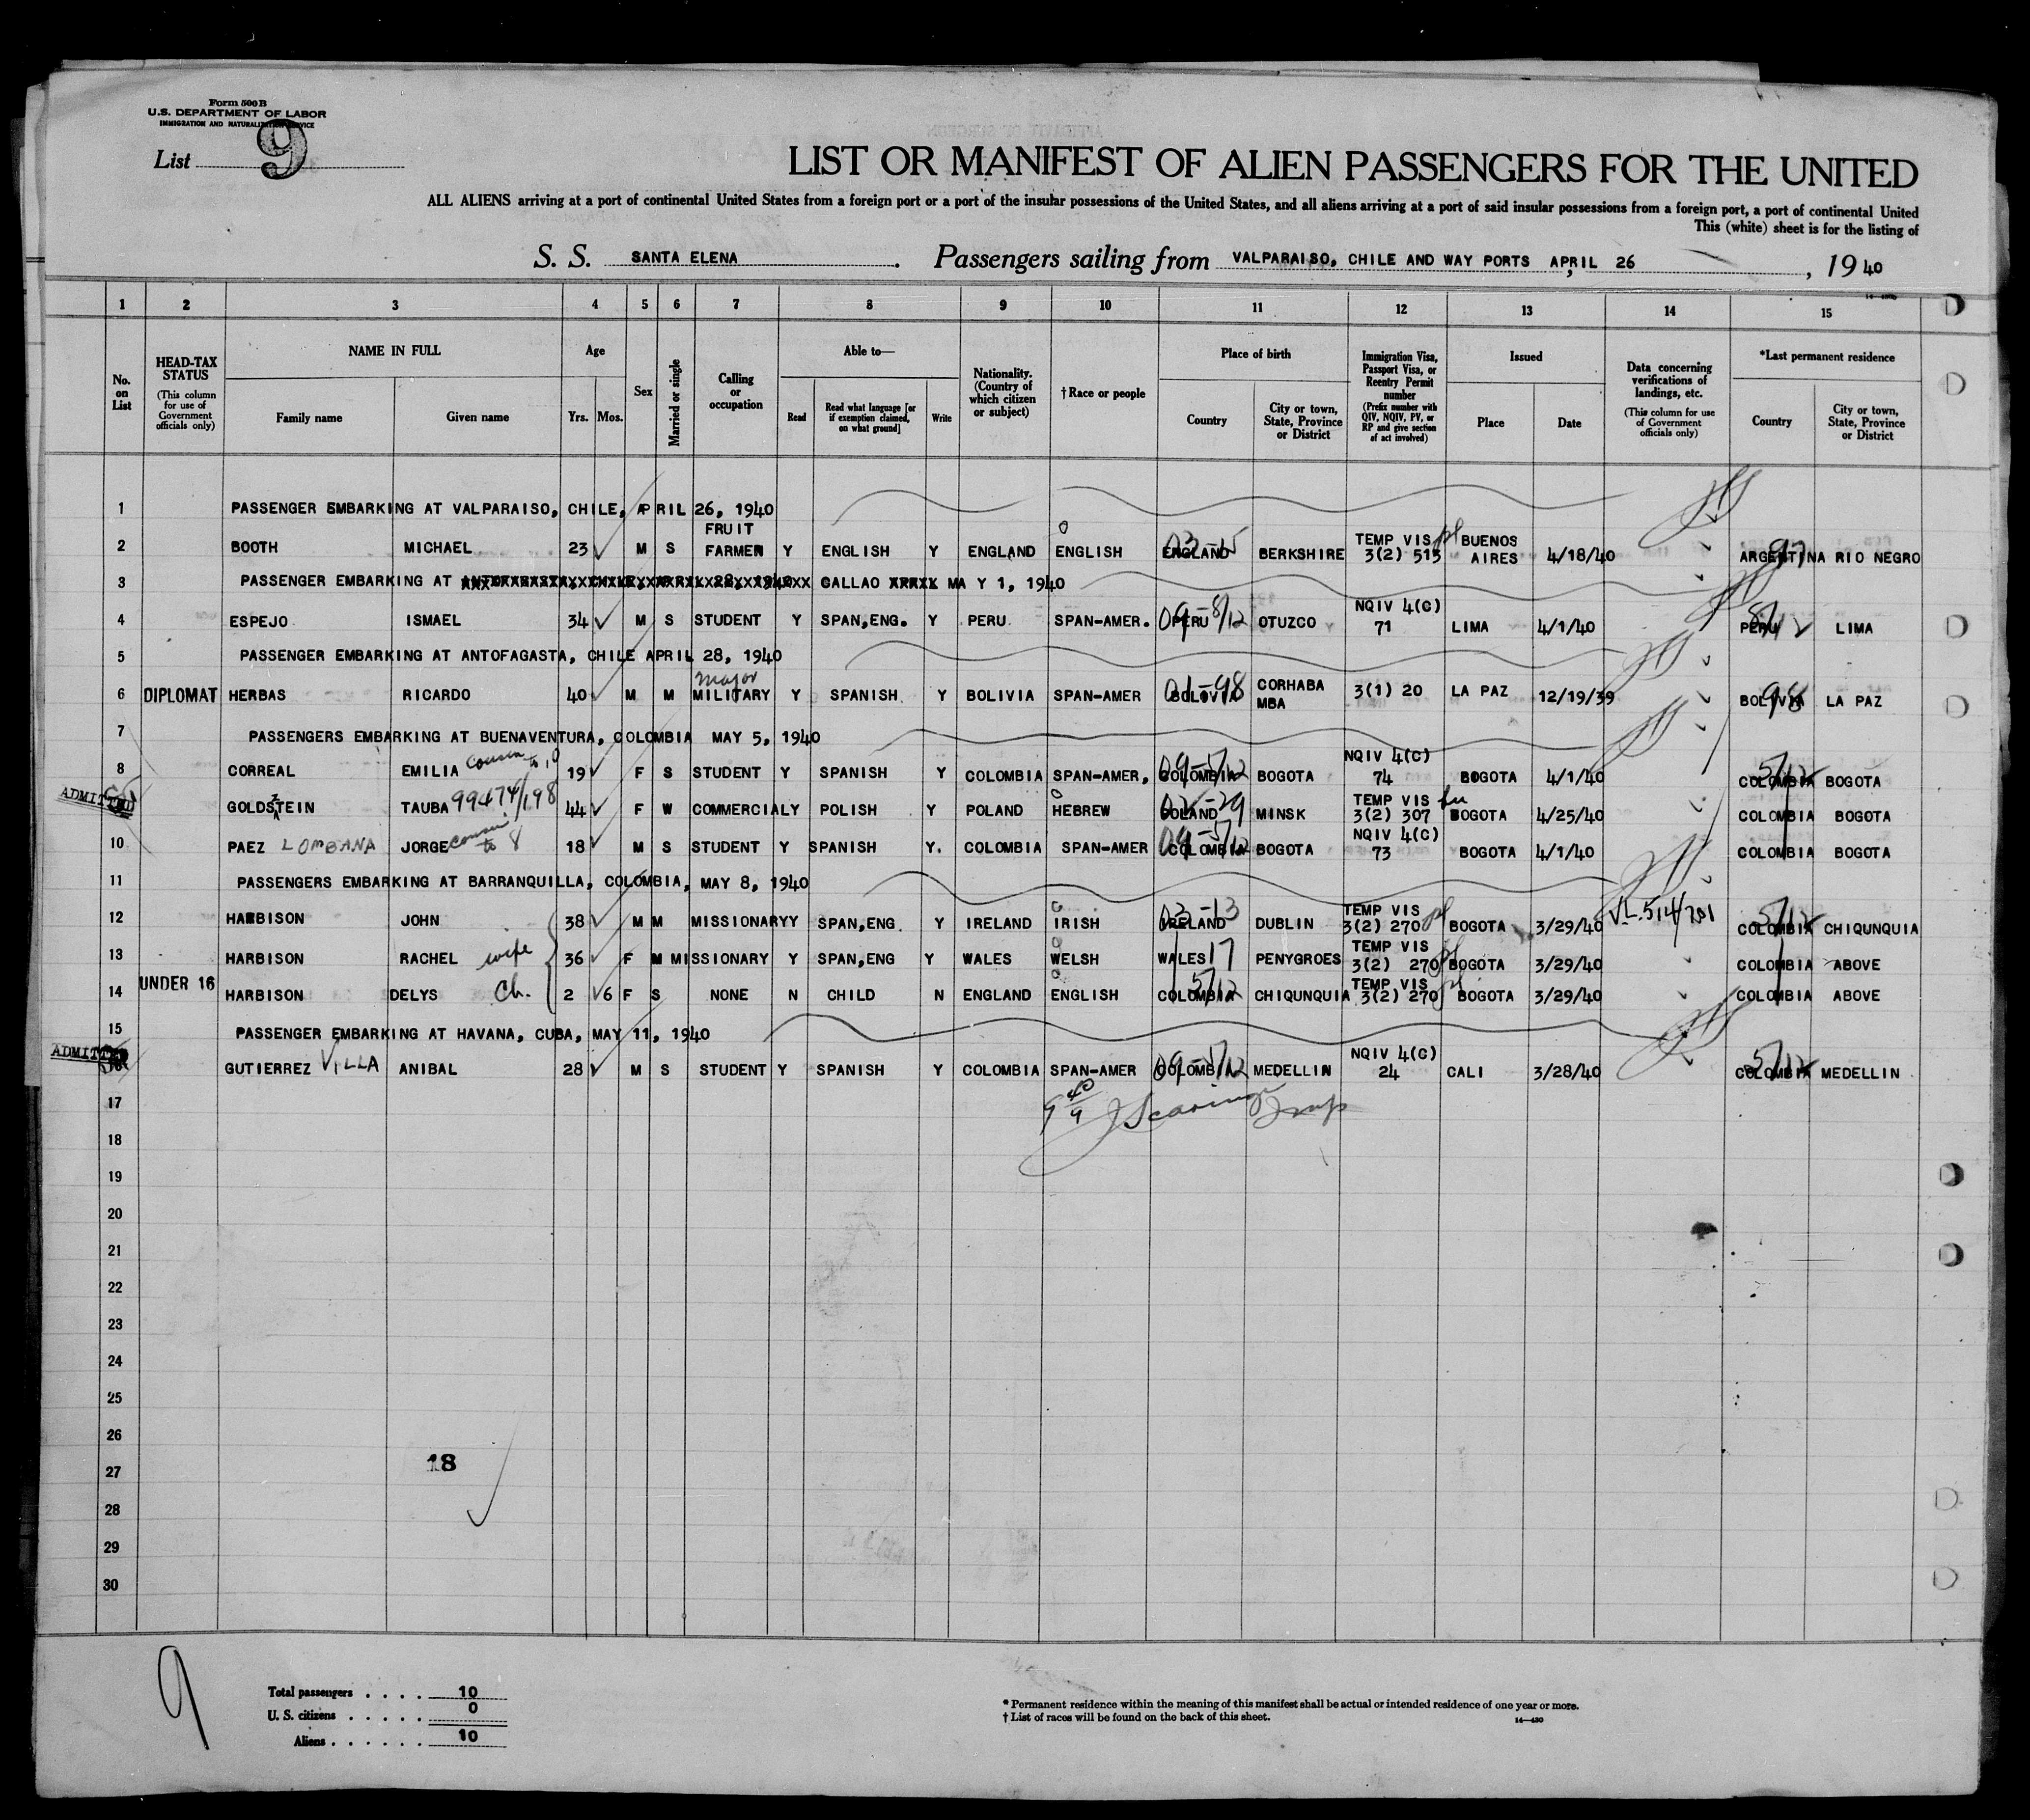 Form 500 B
U.S. DEPARTMENT OF LABOR
IMMIGRATION AND NATURALIZATION SERVICE
List 9
LIST OR MANIFEST OF ALIEN PASSENGERS FOR THE UNITED
ALL ALIENS arriving at a port of continental United States from a foreign port or a port of the insular possessions of the United States, and all aliens arriving at a port of said insular possessions from a foreign port, a port of continental United
This (white) sheet is for the listing of
S. S. SANTA ELENA . Passengers sailing from VALPARAISO, CHILE AND WAY PORTS APRIL 26 , 1940
1 2 3 4 5 6 7 8 9 10 11 12 13 14 15
No. on List
HEAD-TAX STATUS (This column for use of Government officials only)
NAME IN FULL Family name Given name
Age Yrs. Mos.
Sex
Married or single
Calling or occupation
Able to— Read Read what language [or if exemption claimed, on what ground] Write
Nationality. (Country of which citizen or subject)
†Race or people
Place of birth Country City or town, State, Province or District
Immigration Visa, Passport Visa, or Reentry Permit number (Prefix number with QIV, NQIV, PV, or RP and give section of act involved)
Issued Place Date
Data concerning verifications of landings, etc. (This column for use of Government officials only)
*Last permanent residence Country City or town, State, Province or District
1 PASSENGER EMBARKING AT VALPARAISO, CHILE, APRIL 26, 1940
2 BOOTH MICHAEL 23 M S FRUIT FARMER Y ENGLISH Y ENGLAND ENGLISH ENGLAND 03-15 BERKSHIRE TEMP VIS 3(2) 515 BUENOS AIRES 4/18/40 ARGENTINA 97 RIO NEGRO
3 PASSENGER EMBARKING AT CALLAO MA Y 1, 1940
4 ESPEJO ISMAEL 34 M S STUDENT Y SPAN,ENG. Y PERU SPAN-AMER. PERU 09-8/12 OTUZCO NQIV 4(C) 71 LIMA 4/1/40 PERU 8/12 LIMA
5 PASSENGER EMBARKING AT ANTOFAGASTA, CHILE APRIL 28, 1940
6 DIPLOMAT HERBAS RICARDO 40 M M Major MILITARY Y SPANISH Y BOLIVIA SPAN-AMER BOLIVIA 01-98 CORHABA MBA 3(1) 20 LA PAZ 12/19/39 BOLIVIA 98 LA PAZ
7 PASSENGERS EMBARKING AT BUENAVENTURA, COLOMBIA MAY 5, 1940
8 CORREAL EMILIA cousin to 10 19 F S STUDENT Y SPANISH Y COLOMBIA SPAN-AMER, COLOMBIA 09-5/12 BOGOTA NQIV 4(C) 74 BOGOTA 4/1/40 COLOMBIA 5/12 BOGOTA
ADMITTED GOLDSTEIN TAUBA 99474/198 44 F W COMMERCIAL Y POLISH Y POLAND HEBREW POLAND 02-29 MINSK TEMP VIS 3(2) 307 BOGOTA 4/25/40 COLOMBIA BOGOTA
10 PAEZ LOMBANA JORGE cousin to 8 18 M S STUDENT Y SPANISH Y. COLOMBIA SPAN-AMER COLOMBIA 09-5/12 BOGOTA NQIV 4(C) 73 BOGOTA 4/1/40 COLOMBIA BOGOTA
11 PASSENGERS EMBARKING AT BARRANQUILLA, COLOMBIA, MAY 8, 1940
12 HARBISON JOHN 38 M M MISSIONARY Y SPAN,ENG. Y IRELAND IRISH IRELAND 03-13 DUBLIN TEMP VIS 3(2) 270 BOGOTA 3/29/40 VL.514/701 COLOMBIA 5/12 CHIQUNQUIA
13 HARBISON RACHEL wife 36 F M MISSIONARY Y SPAN,ENG Y WALES WELSH WALES 17 PENYGROES TEMP VIS 3(2) 270 BOGOTA 3/29/40 COLOMBIA ABOVE
14 UNDER 16 HARBISON DELYS Ch. 2 6 F S NONE N CHILD N ENGLAND ENGLISH COLOMBIA 5/12 CHIQUNQUIA TEMP VIS 3(2) 270 BOGOTA 3/29/40 COLOMBIA ABOVE
15 PASSENGER EMBARKING AT HAVANA, CUBA, MAY 11, 1940
ADMITTED GUTIERREZ VILLA ANIBAL 28 M S STUDENT Y SPANISH Y COLOMBIA SPAN-AMER COLOMBIA 09-5/12 MEDELLIN NQIV 4(C) 24 CALI 3/28/40 COLOMBIA 5/12 MEDELLIN
17
18
19
20
21
22
23
24
25
26
27
18
28
29
30
9
Total passengers . . . . 10
U. S. citizens . . . . . 0
Aliens . . . . . . 10
* Permanent residence within the meaning of this manifest shall be actual or intended residence of one year or more.
† List of races will be found on the back of this sheet.
14—430